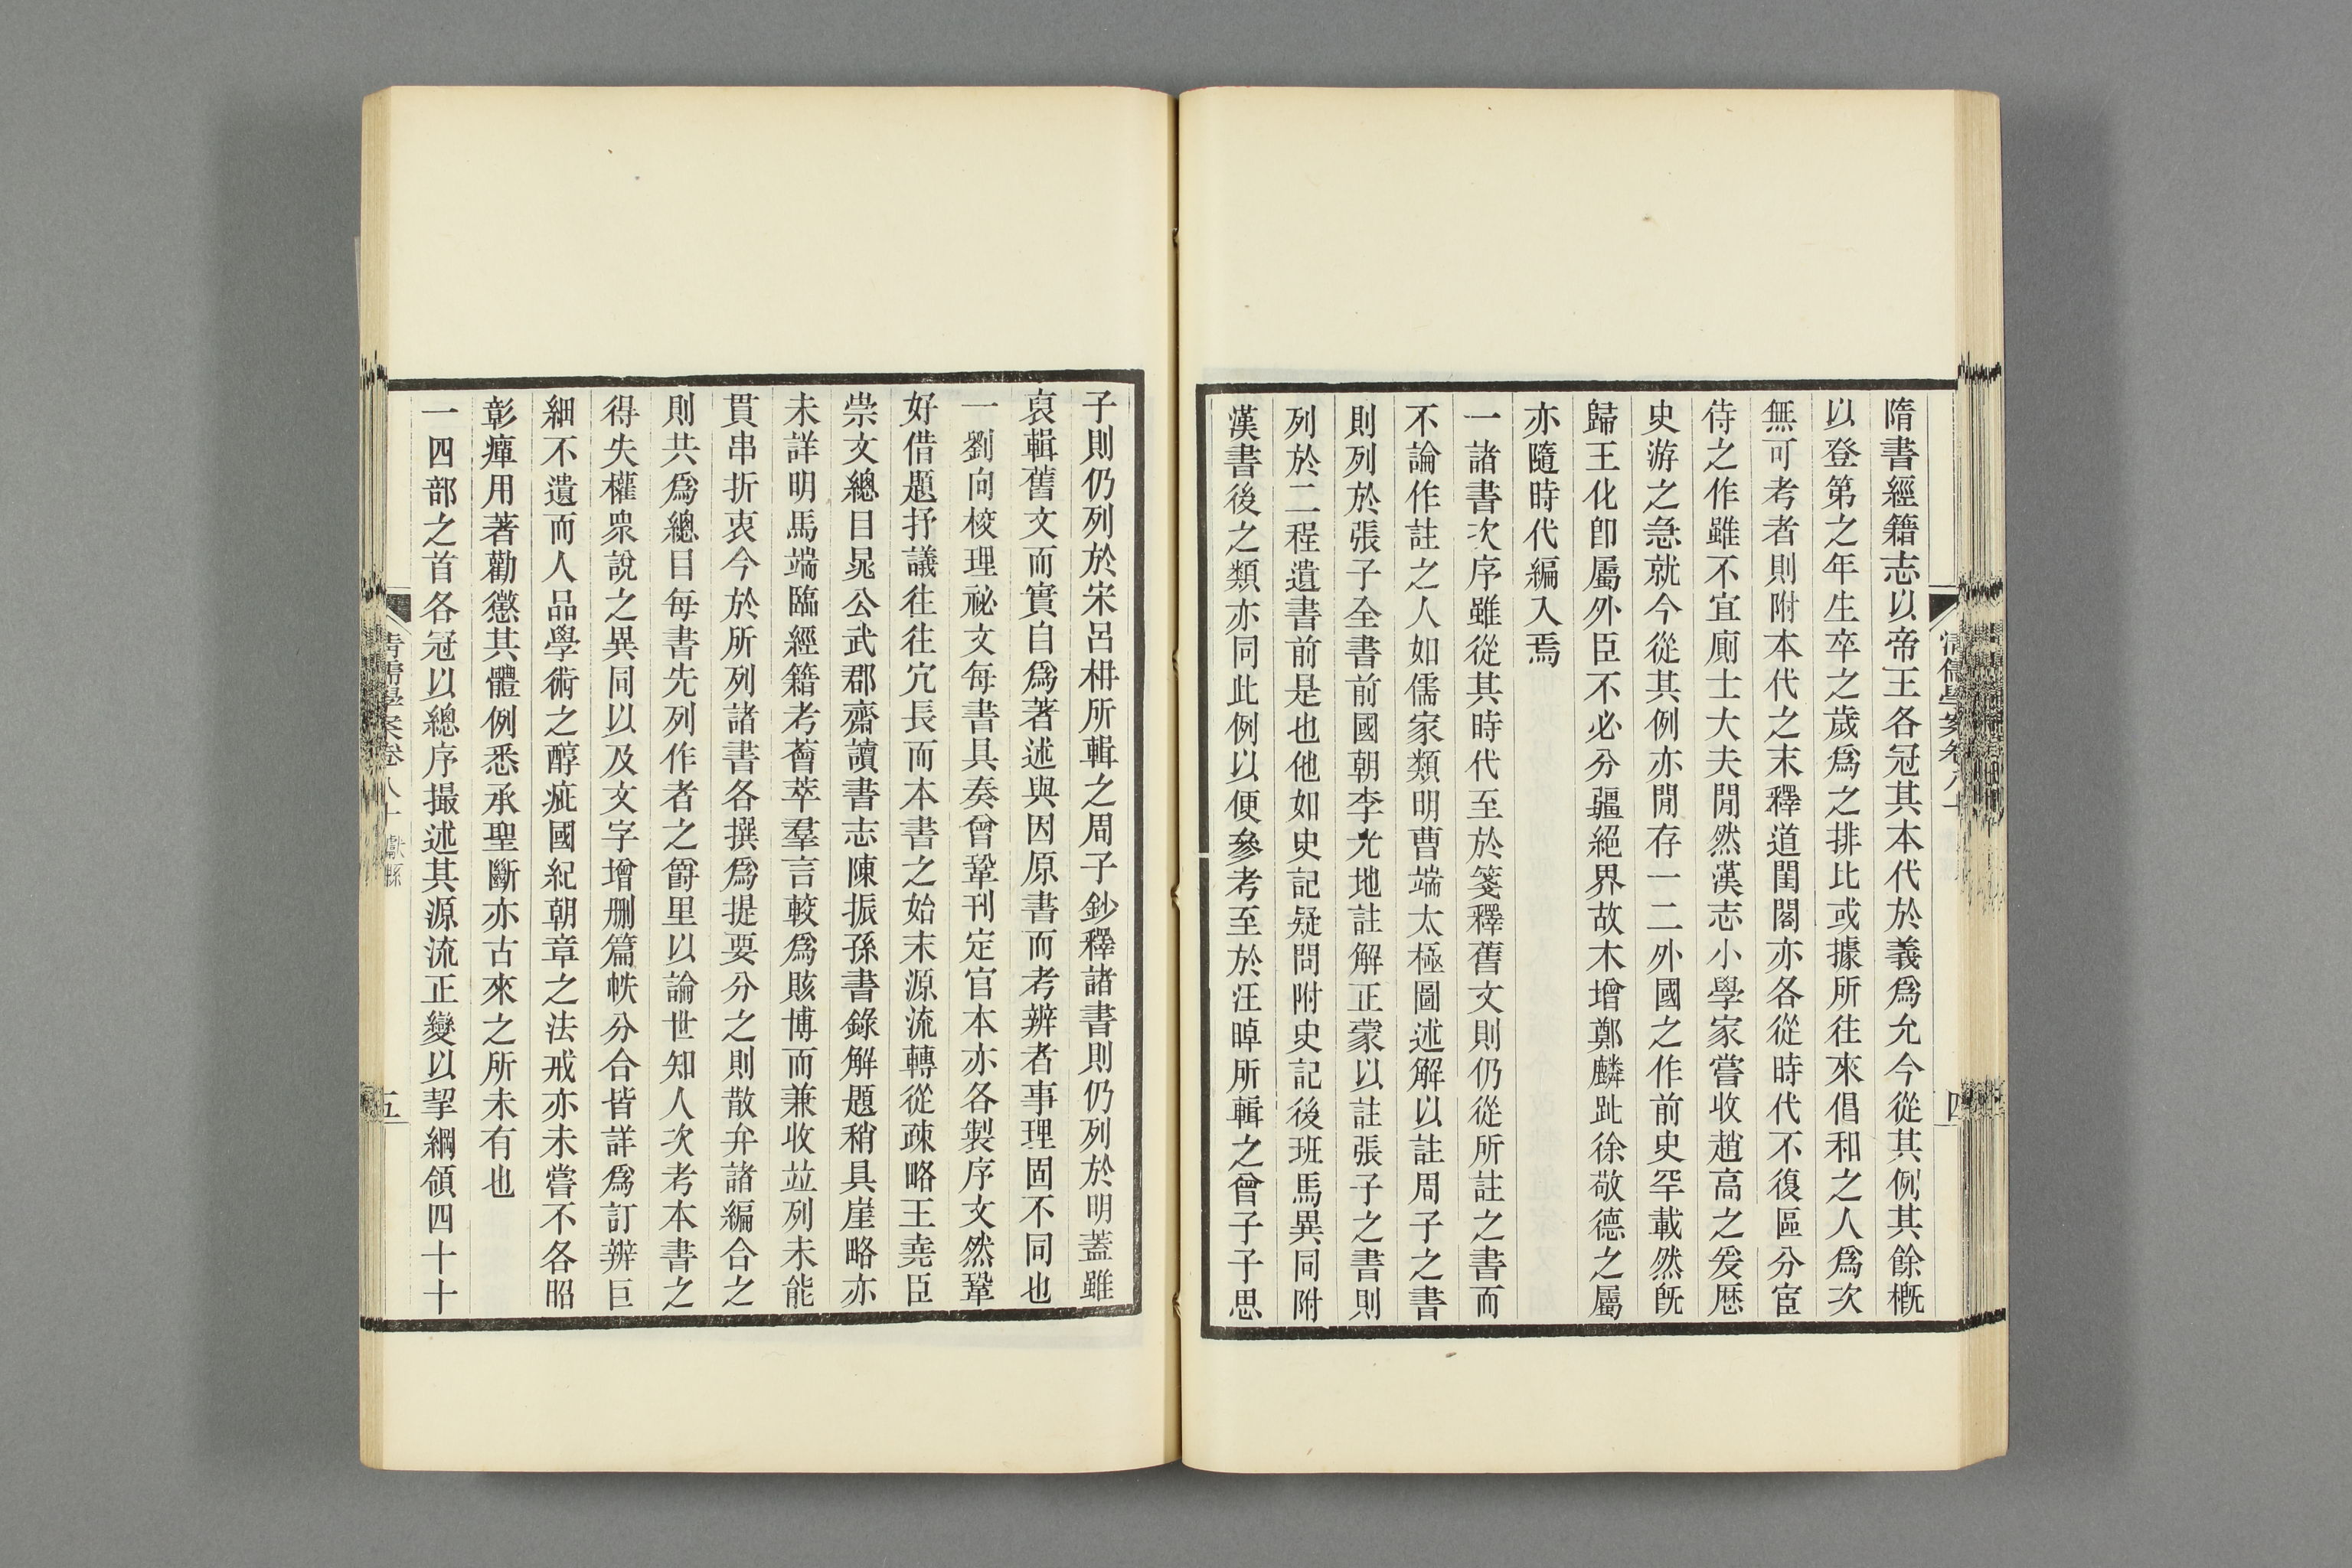 隋書經籍志以帝王各冠其本代於義爲允今從其例其餘槪
以登第之年生卒之歲爲之排比或據所往來倡和之人爲次
無可考者則附本代之末釋道閨閣亦各從時代不復區分宦
侍之作雖不宜廁士大夫閒然漢志小學家嘗收趙高之爰歷
史游之急就今從其例亦閒存一二外國之作前史罕載然旣
歸王化卽屬外臣不必分疆絕界故木增鄭麟趾徐敬德之屬
亦隨時代編入焉
一諸書次序雖從其時代至於箋釋舊文則仍從所註之書而
不論作註之人如儒家類明曹端太極圖述解以註周子之書
則列於張子全書前國朝李光地註解正蒙以註張子之書則
列於二程遺書前是也他如史記疑問附史記後班馬異同附
漢書後之類亦同此例以便參考至於汪晫所輯之曾子子思
子則仍列於宋呂枏所輯之周子鈔釋諸書則仍列於明蓋雖
裒輯舊文而實自爲著述與因原書而考辨者事理固不同也
一劉向校理祕文每書具奏曾鞏刊定官本亦各製序文然鞏
好借題抒議往往冗長而本書之始末源流轉從疎略王堯臣
崇文總目晁公武郡齋讀書志陳振孫書錄解題稍具崖略亦
未詳明馬端臨經籍考薈萃羣言較爲賅博而兼收竝列未能
貫串折衷今於所列諸書各撰爲提要分之則散弁諸編合之
則共爲總目每書先列作者之爵里以論世知人次考本書之
得失權衆說之異同以及文字增刪篇帙分合皆詳爲訂辨巨
細不遺而人品學術之醇疵國紀朝章之法戒亦未嘗不各昭
彰癉用著勸懲其體例悉承聖斷亦古來之所未有也
一四部之首各冠以總序撮述其源流正變以挈綱領四十十
清儒學案卷八十 獻縣
五
清儒學案卷八十
四